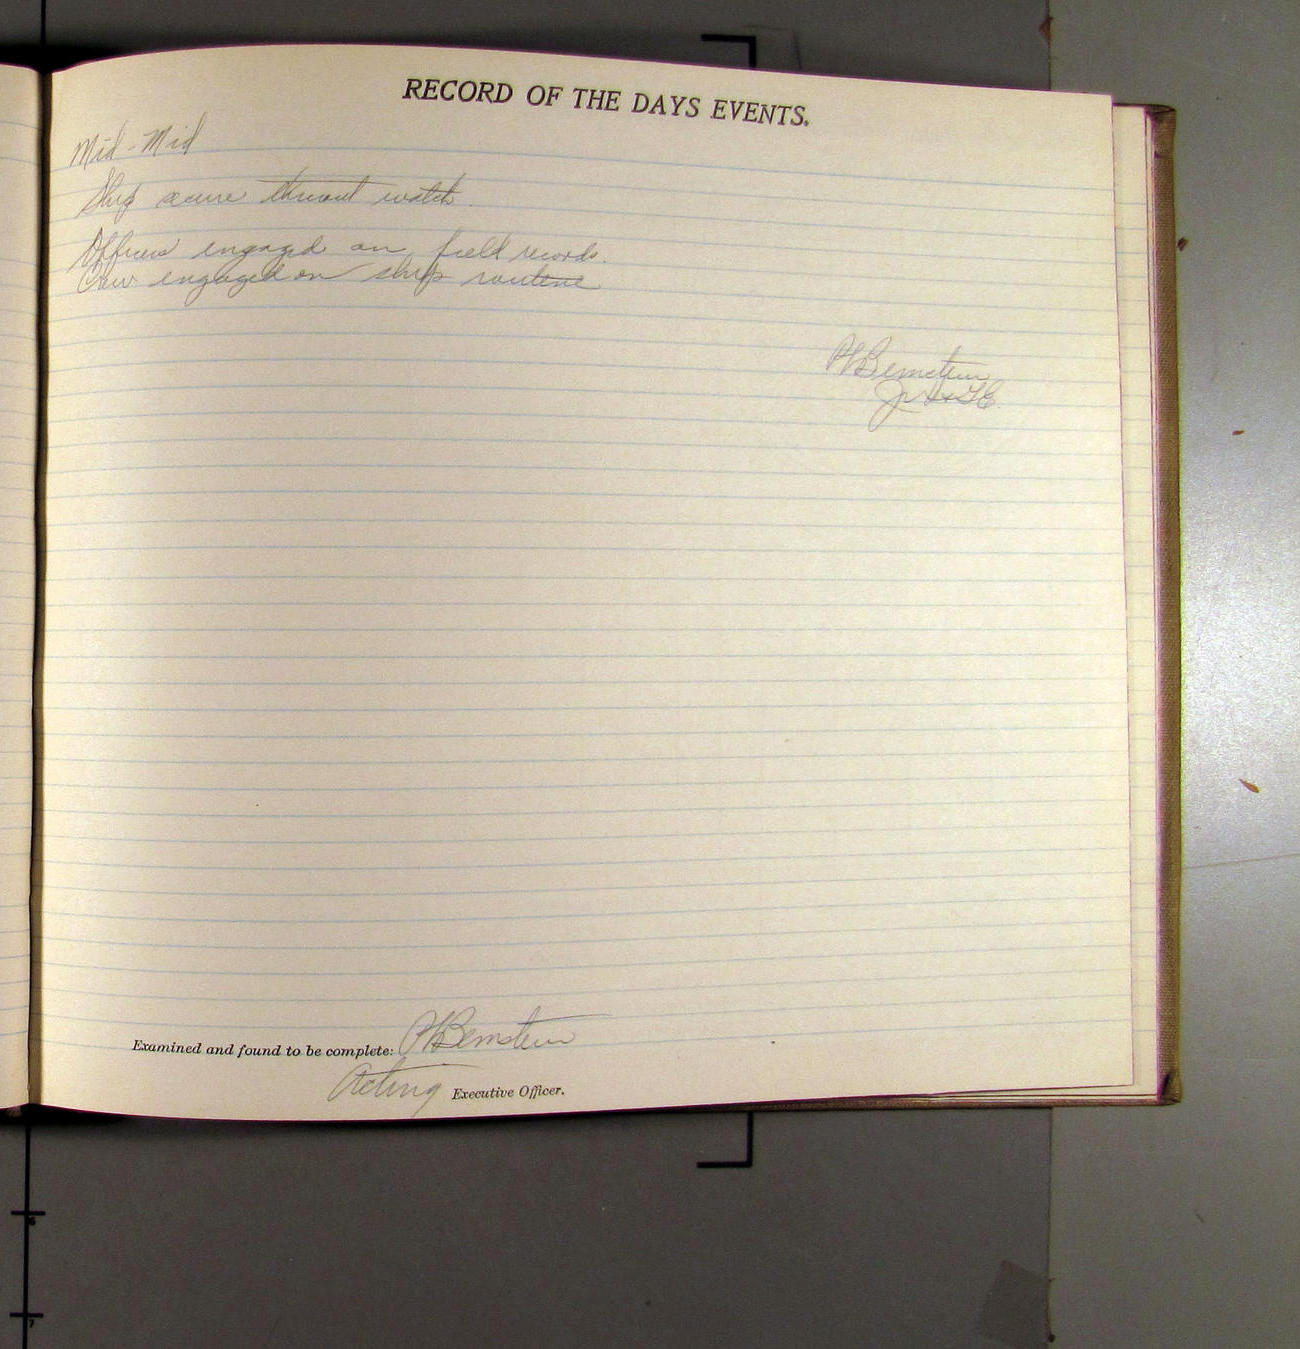 RECORD OF THE DAYS EVENTS.
Mid-Mid
Ship secure thruout watch.
Officers engaged on field records.
Crew engaged on ship routine
PBernstein
Jr. H.&G.E.
Examined and found to be complete: PBernstein
Acting Executive Officer.
6
7